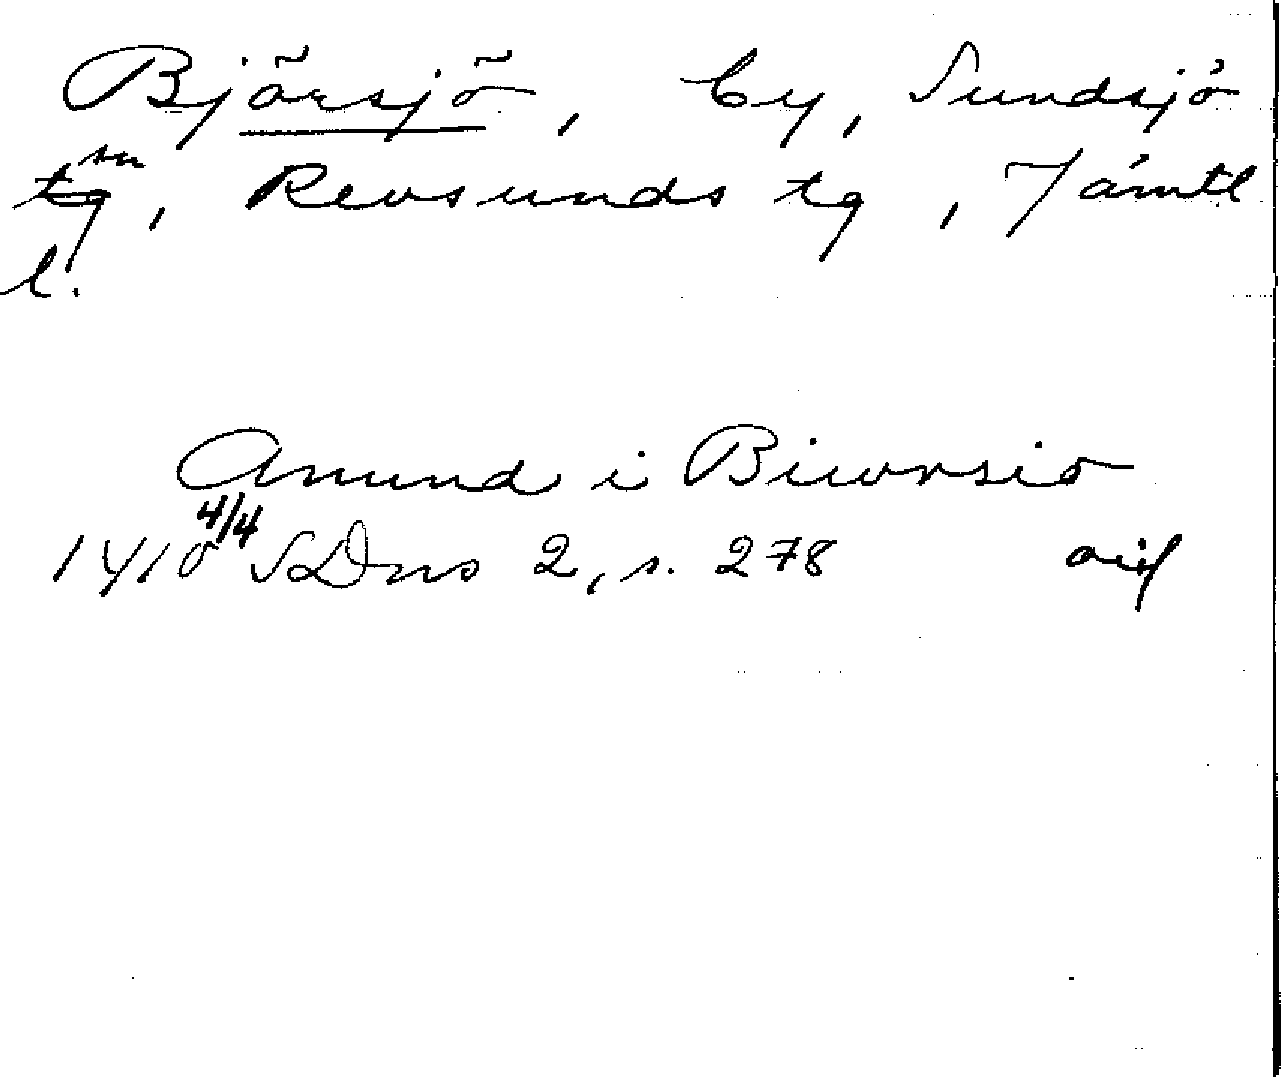 Björsjö, by, Sundsjö
sn, Revsunds tg, Jämtl
l.
Amund i Biworsio
1410 4/4 SDns 2, s. 278